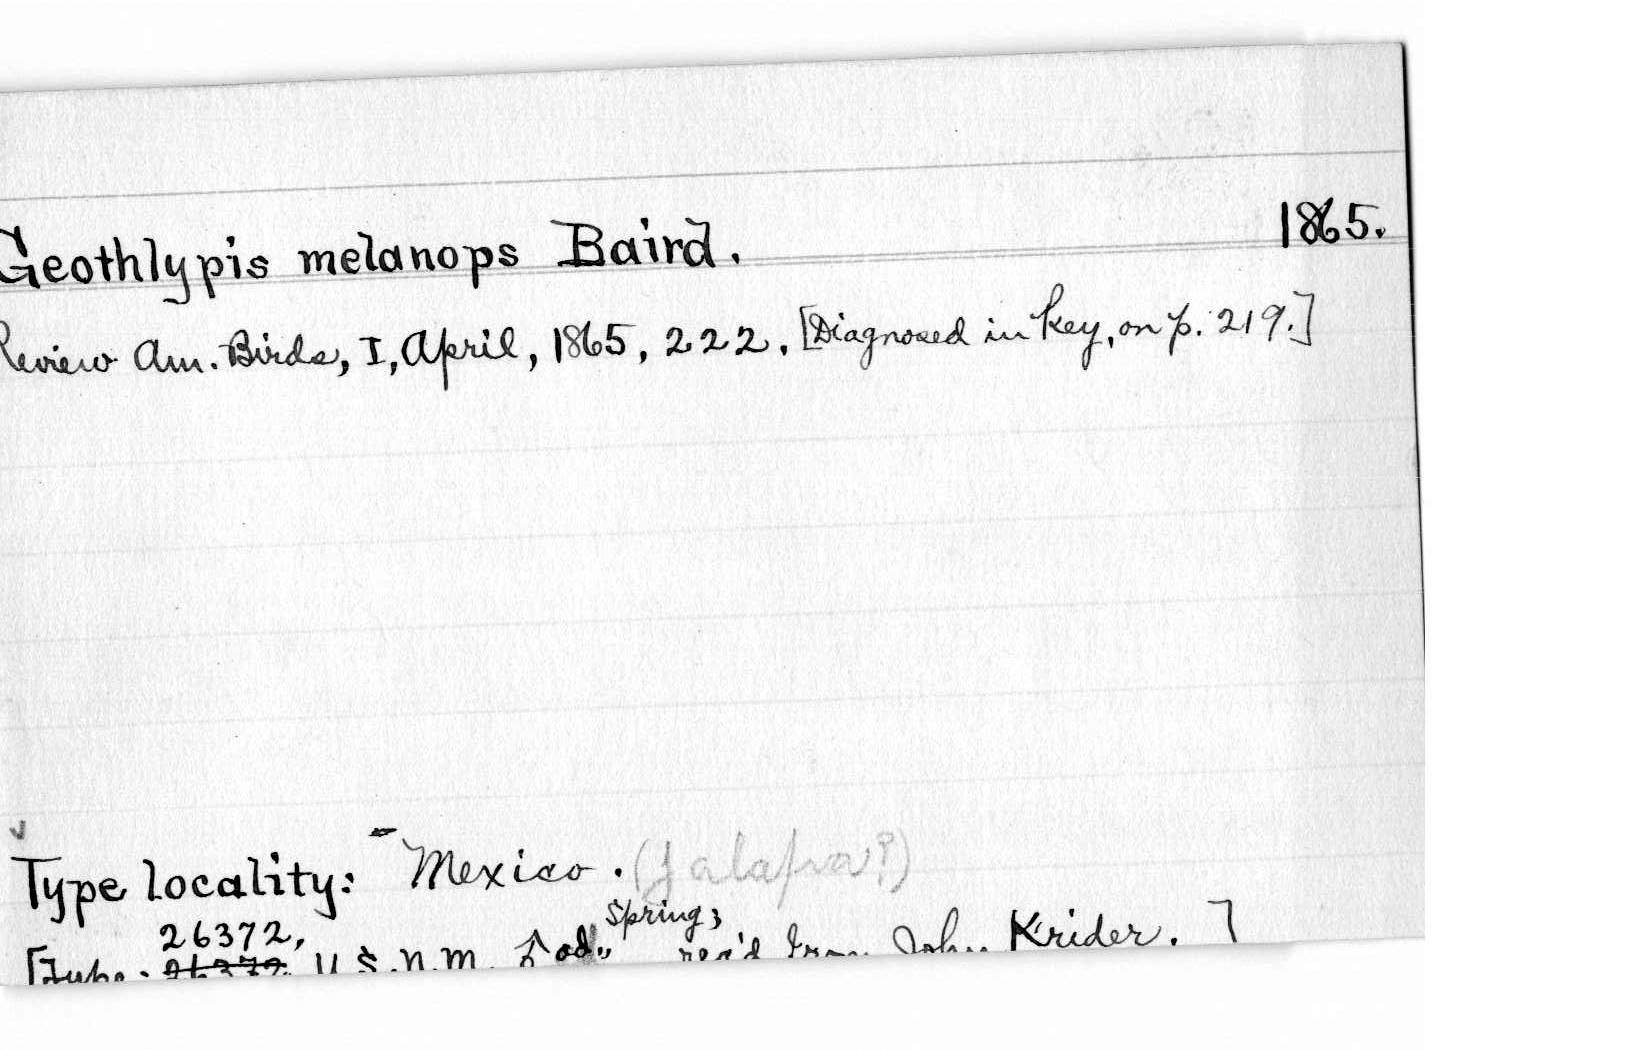 Geothlypis melanops Baird. 1865.
Review Am. Birds, I, April, 1865, 222. [Diagnosed in key, on p. 219.]
Type locality: Mexico. (Jalapa?)
[Type: 26372, ~~26372~~ U.S.N.M. ♂ ad., Spring; rec'd from John Krider.]